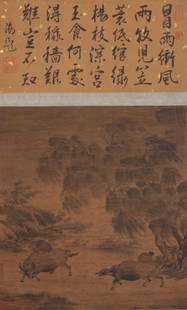 冒雨衝風
兩牧児笠
蓑低綰綠
楊枝深宮
玉食何
得穡艱
難豈不知